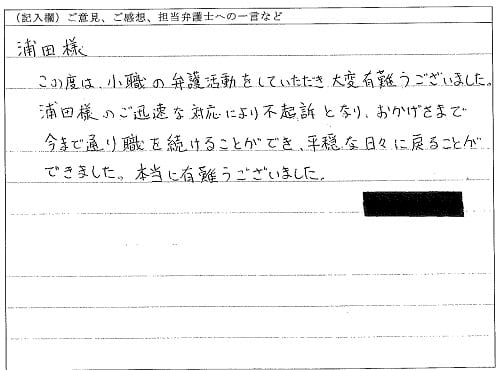 （記入欄）ご意見、ご感想、担当弁護士への一言など
浦田様
この度は、小職の弁護活動をしていただき大変有難うございました。
浦田様のご迅速な対応により不起訴となり、おかげさまで
今まで通り職を続けることができ、平穏な日々に戻ることが
できました。本当に有難うございました。